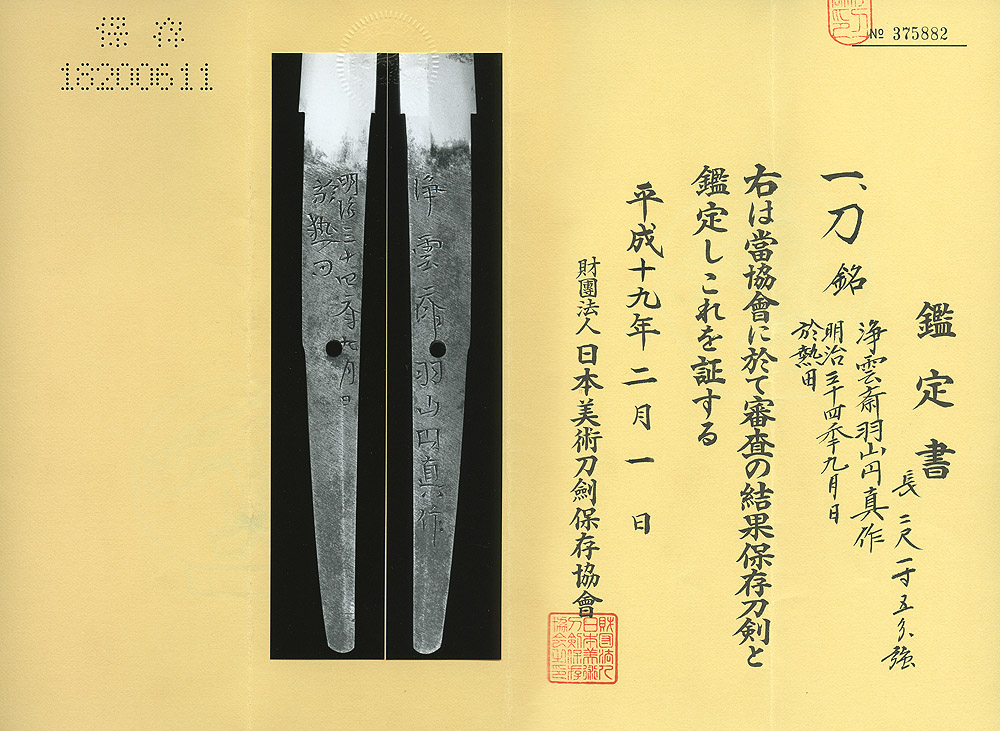 保存
18200611
№ 375882
鑑定書
長 二尺一寸五分強
一、刀 銘 浄雲斎羽山円真作
明治三十四年九月日
於熱田
右は當協會に於て審査の結果保存刀剣と
鑑定しこれを証する
平成十九年二月一日
財團法人日本美術刀劍保存協會
財団法人
日本美術
刀剣保存
協会之印
浄雲斎羽山円真作
明治三十四年九月日
於熱田